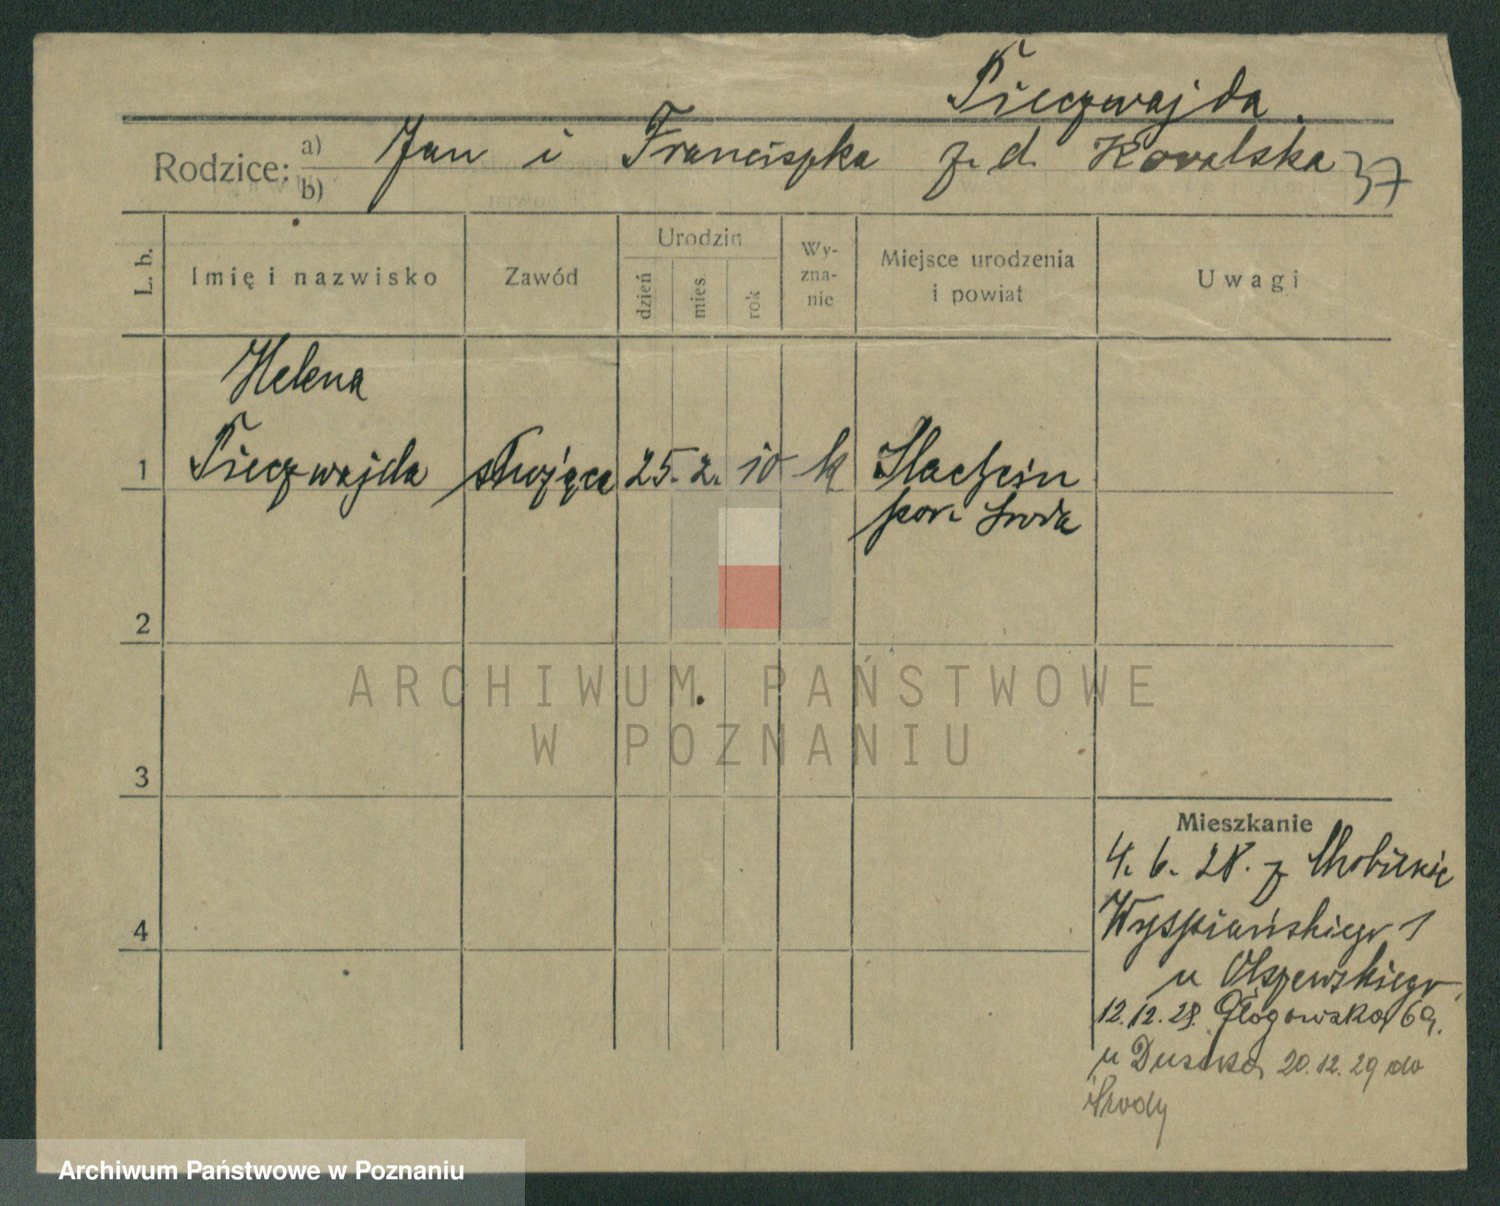 Pieczwajda.
Rodzice: a) Jan i Franciszka z. d. Kowalska 37
b)
L. b. Imię i nazwisko Zawód Urodzin dzień mies. rok Wy-zna-nie Miejsce urodzenia i powiat Uwagi
Helena
1 Pieczwajda służąca 25. 2. 10 k Slachcin
pow. Środa
2
3
4
Mieszkanie
4. 6. 28. z
Wyspiańskiego 1
u Olszewskiego
12.12.28. Głogowska 69.
u 20.12.29 do
Środy
ARCHIWUM PAŃSTWOWE
W POZNANIU
Archiwum Państwowe w Poznaniu